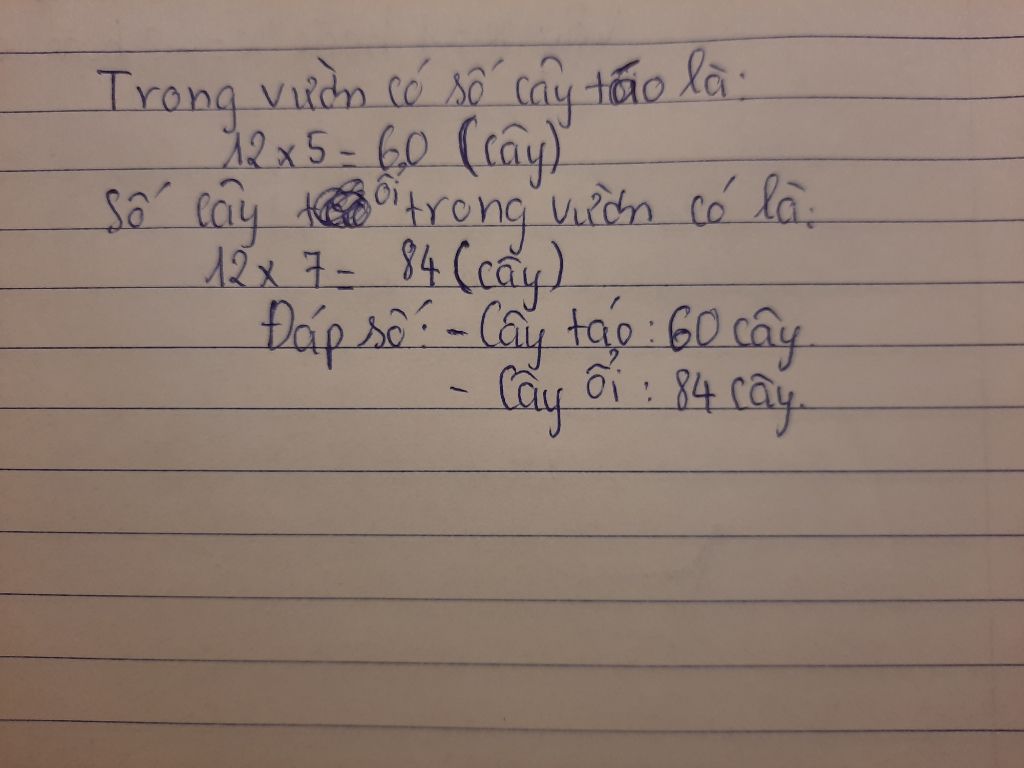 Trong vườn có số cây táo là:
12 x 5 = 60 (cây)
Số cây ổi trong vườn có là:
12 x 7 = 84 (cây)
Đáp số: - Cây táo : 60 cây.
- Cây ổi : 84 cây.